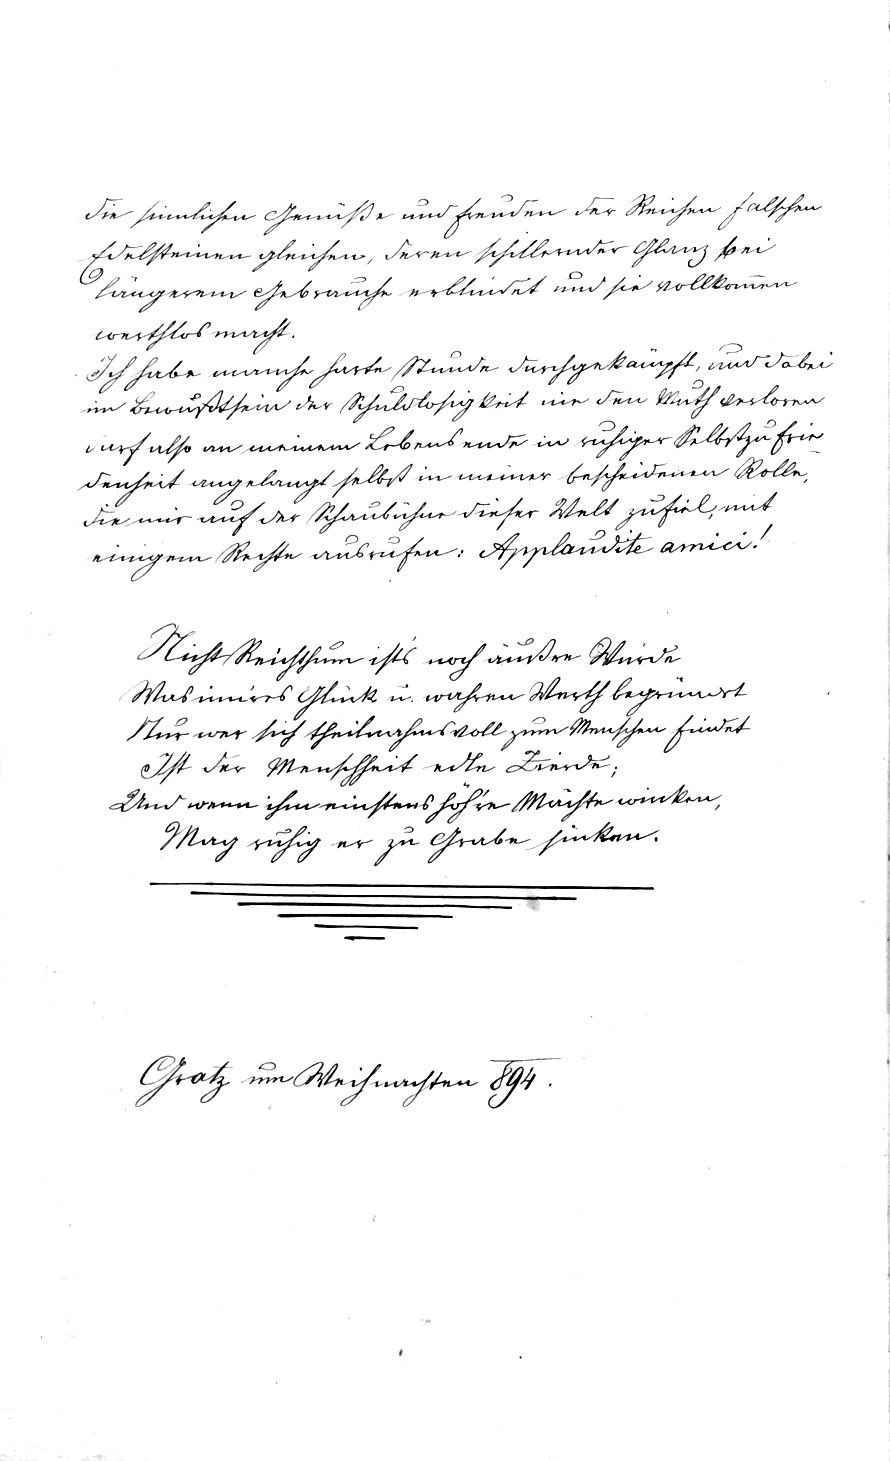 die sinnlichen Genüße und Freuden der Reichen falschen
Edelsteinen gleichen, deren schillernder Glanz bei
längerem Gebrauche erblindet und sie vollkom̅en
werthlos macht.
Ich habe manche harte Stunde durchgekämpft, und dabei
im Bewußtsein der Schuldlosigkeit nie den Muth verloren
darf also an meinem Lebensende in ruhiger Selbstzufrie
denheit angelangt selbst in meiner bescheidenen Rolle,
die mir auf der Schaubühne dieser Welt zufiel, mit
einigem Rechte ausrufen: Applaudite amici!
Nicht Reichthum ist's noch äußre Würde
Was inn'res Glück u. wahren Werth begründet
Nur wer sich theilnahmsvoll zum Menschen findet
Ist der Menschheit edle Zierde;
Und wenn ihm einstens höh're Mächte winken,
Mag ruhig er zu Grabe sinken.
Gratz um Weihnachten 894.